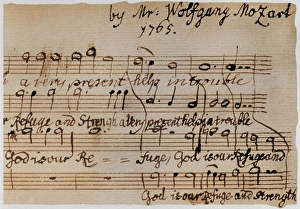 by Mr. Wolfgang Mozart
1765.
a very present help in trouble
Refuge and Strength a very present help in trouble
God is our Re = = fuge, God is our Refuge and
God is our Refuge and Strength